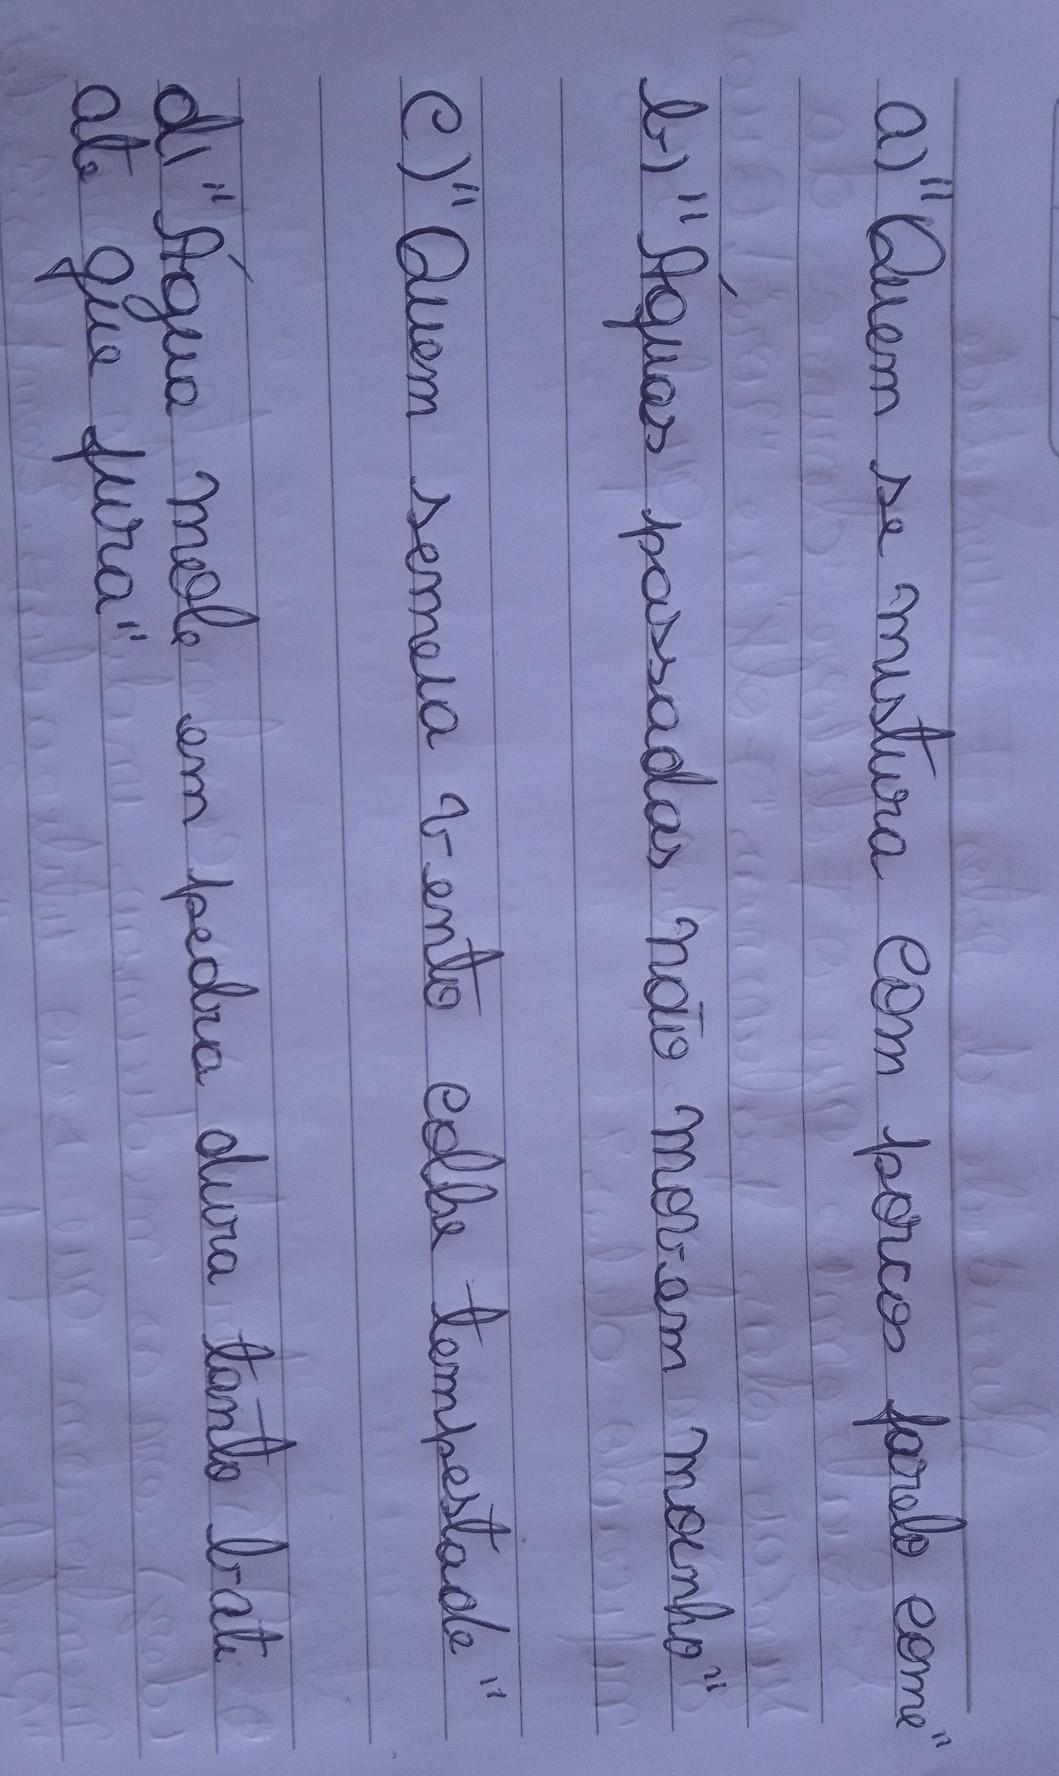 a) "Quem se mistura com porcos farelo come"
b) "Águas passadas não movem moinho"
c) "Quem semeia vento colhe tempestade"
d) "Água mole em pedra dura tanto bate
até que fura"